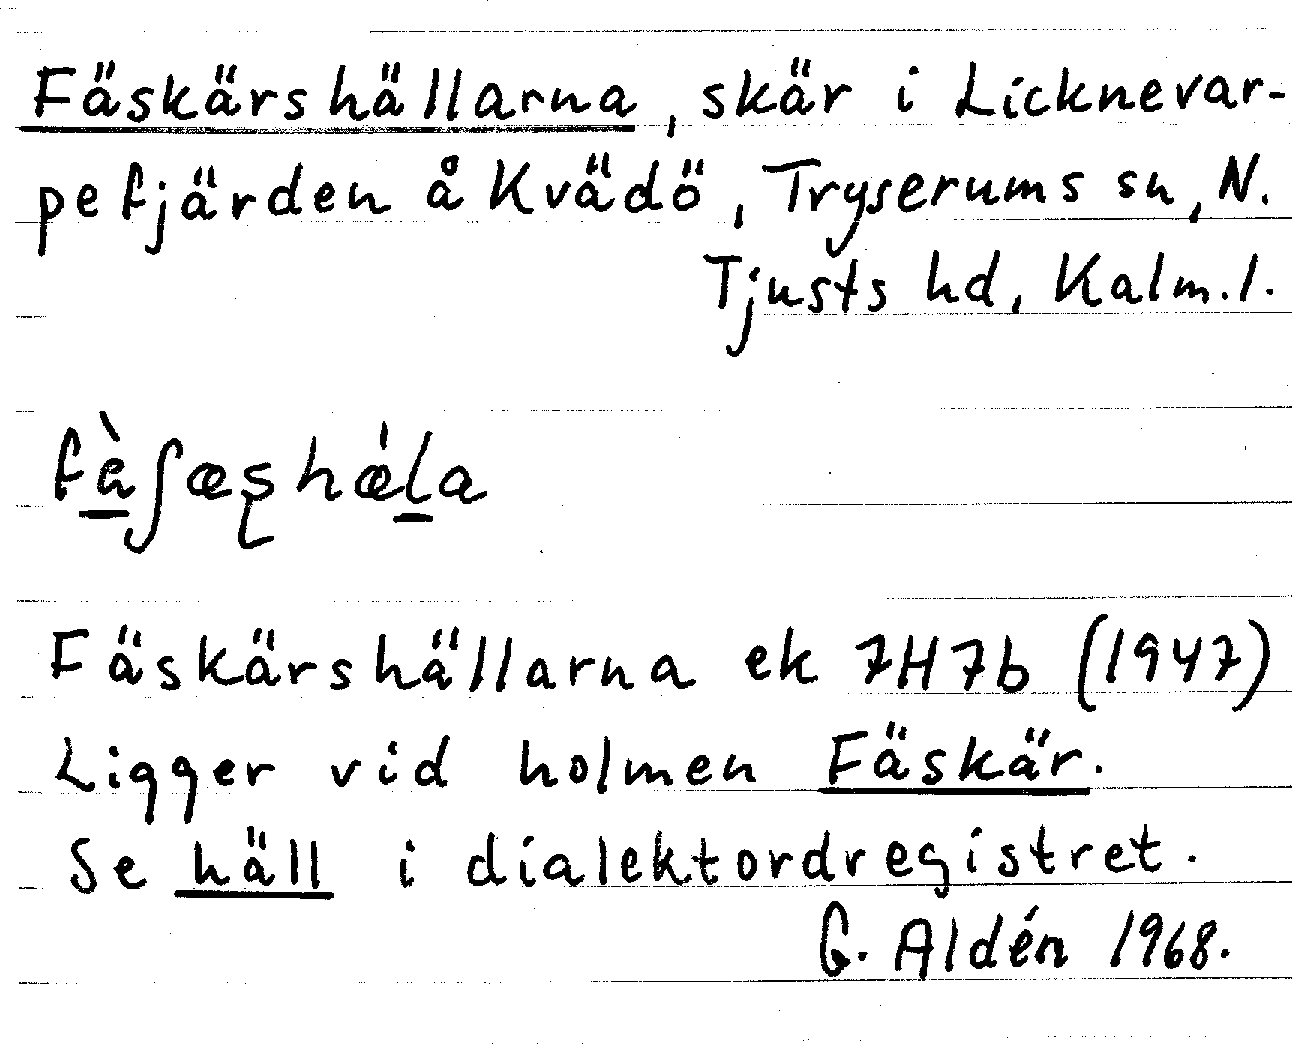 Fäskärshällarna, skär i Licknevar-
pefjärden å Kvädö, Tryserums sn, N.
Tjusts hd, Kalm.l.
Fäskärshällarna ek 7H7b (1947)
Ligger vid holmen Fäskär.
Se häll i dialektordregistret.
G. Aldén 1968.